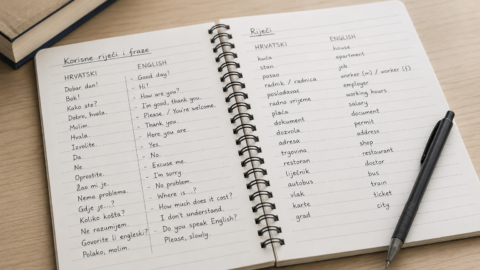 Korisne riječi i fraze
HRVATSKI ENGLISH
Dobar dan! - Good day!
Bok! - Hi!
Kako ste? - How are you?
Dobro, hvala. - I'm good, thank you.
Molim. - Please. / You're welcome.
Hvala. - Thank you.
Izvolite. - Here you are.
Da. - Yes.
Ne. - No.
Oprostite. - Excuse me.
Žao mi je. - I'm sorry.
Nema problema. - No problem.
Gdje je...? - Where is...?
Koliko košta? - How much does it cost?
Ne razumijem. I don't understand.
Govorite li engleski? - Do you speak English?
Polako, molim. Please, slowly.
Riječi
HRVATSKI ENGLISH
kuća house
stan apartment
posao job
radnik / radnica worker (m) / worker (f)
poslodavac employer
radno vrijeme working hours
plaća salary
dokument document
dozvola permit
adresa address
trgovina shop
restoran restaurant
liječnik doctor
autobus bus
vlak train
karte ticket
grad city